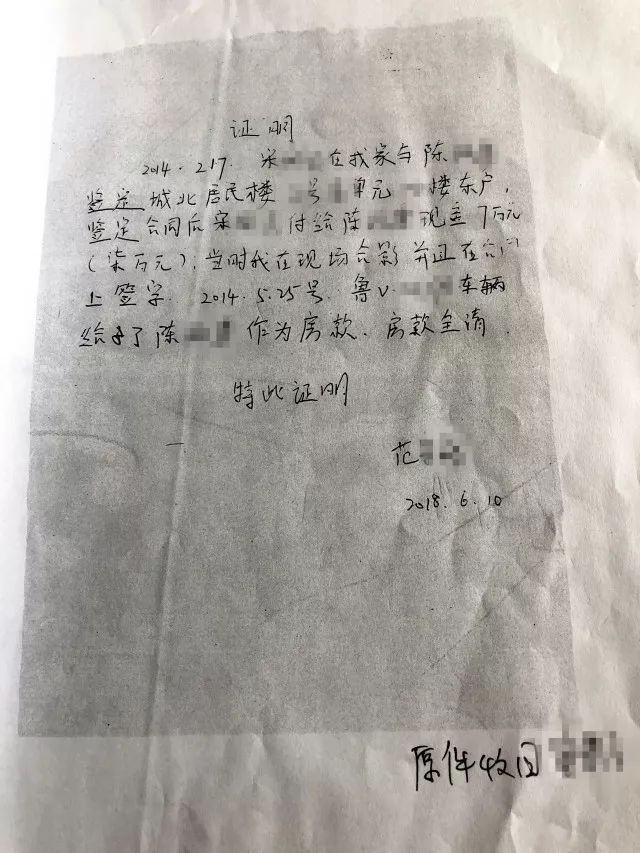 证明
2014.2.17. 宋 在我家与陈
鉴定城北居民楼 号 单元 楼东户,
鉴定合同后宋 付给陈 现金7万元
(柒万元),当时我在现场合影并且在合同
上签字. 2014.5.25号. 鲁V. 车辆
给了陈 作为房款、房款全清.
特此证明
范
2018.6.10
原件收回